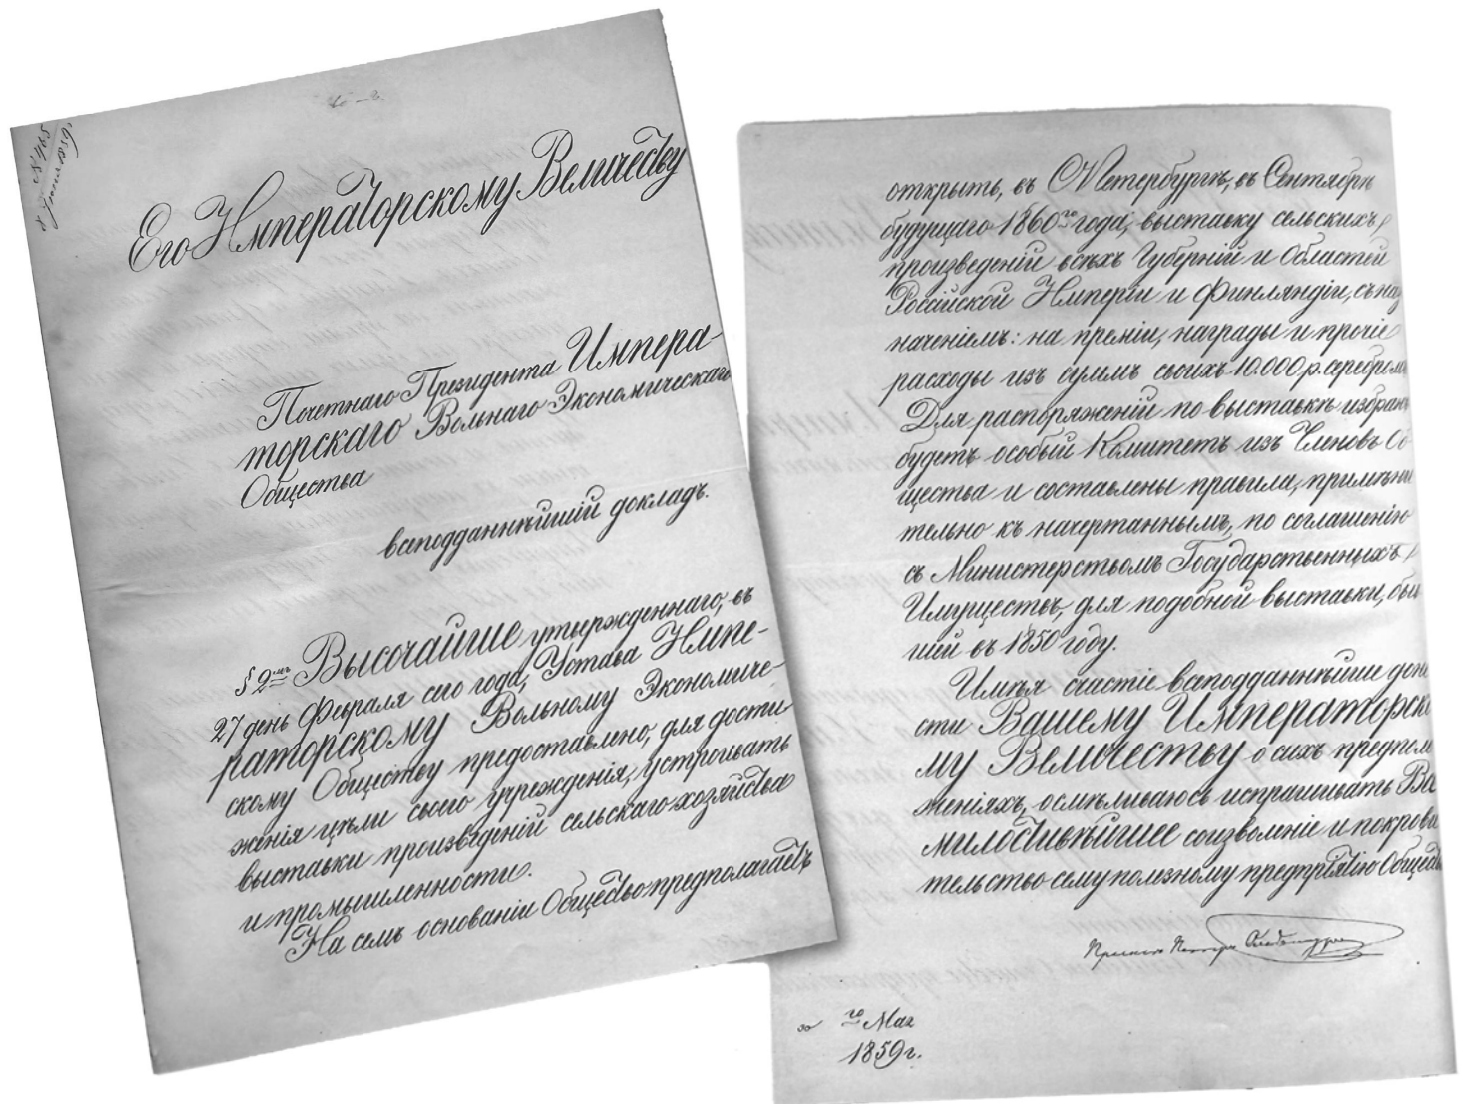 № 465
Его Императорскому Величеству
Почетнаго Президента Импера-
торскаго Вольнаго Экономическаго
Общества
всеподданнѣйшій докладъ.
§ 2мъ Высочайше утвержденнаго, въ
27 день Февраля сего года, Устава Импе-
раторскому Вольному Экономиче-
скому Обществу предоставлено, для дости-
женія цѣли своего учрежденія, устроивать
выставки произведеній сельскаго хозяйства
и промышленности.
На семъ основаніи Общество предполагаетъ
открыть, въ С Петербургѣ, въ Сентябрѣ
будущаго 1860го года, выставку сельскихъ
произведеній всѣхъ Губерній и Областей
Россійской Имперіи и Финляндіи, съ наз
наченіемъ: на преміи, награды и прочіе
расходы изъ суммъ своихъ 10.000 р. серебромъ
Для распоряженій по выставкѣ избранъ
будетъ особый Комитетъ изъ Членовъ Об
щества и составлены правила, примѣни
тельно къ начертаннымъ, по соглашенію
съ Министерствомъ Государственныхъ
Имуществъ, для подобной выставки, быв
шей въ 1850 году.
Имѣя счастіе всеподданнѣйше доне
сти Вашему Императорско
му Величеству о сихъ предполо
женіяхъ, осмѣливаюсь испрашивать Ва
милостивѣйшее соизволеніе и покрови
тельство сему полезному предпріятію Общества
Принцъ Петръ Ольденбургскій
30 го Мая
1859 г.